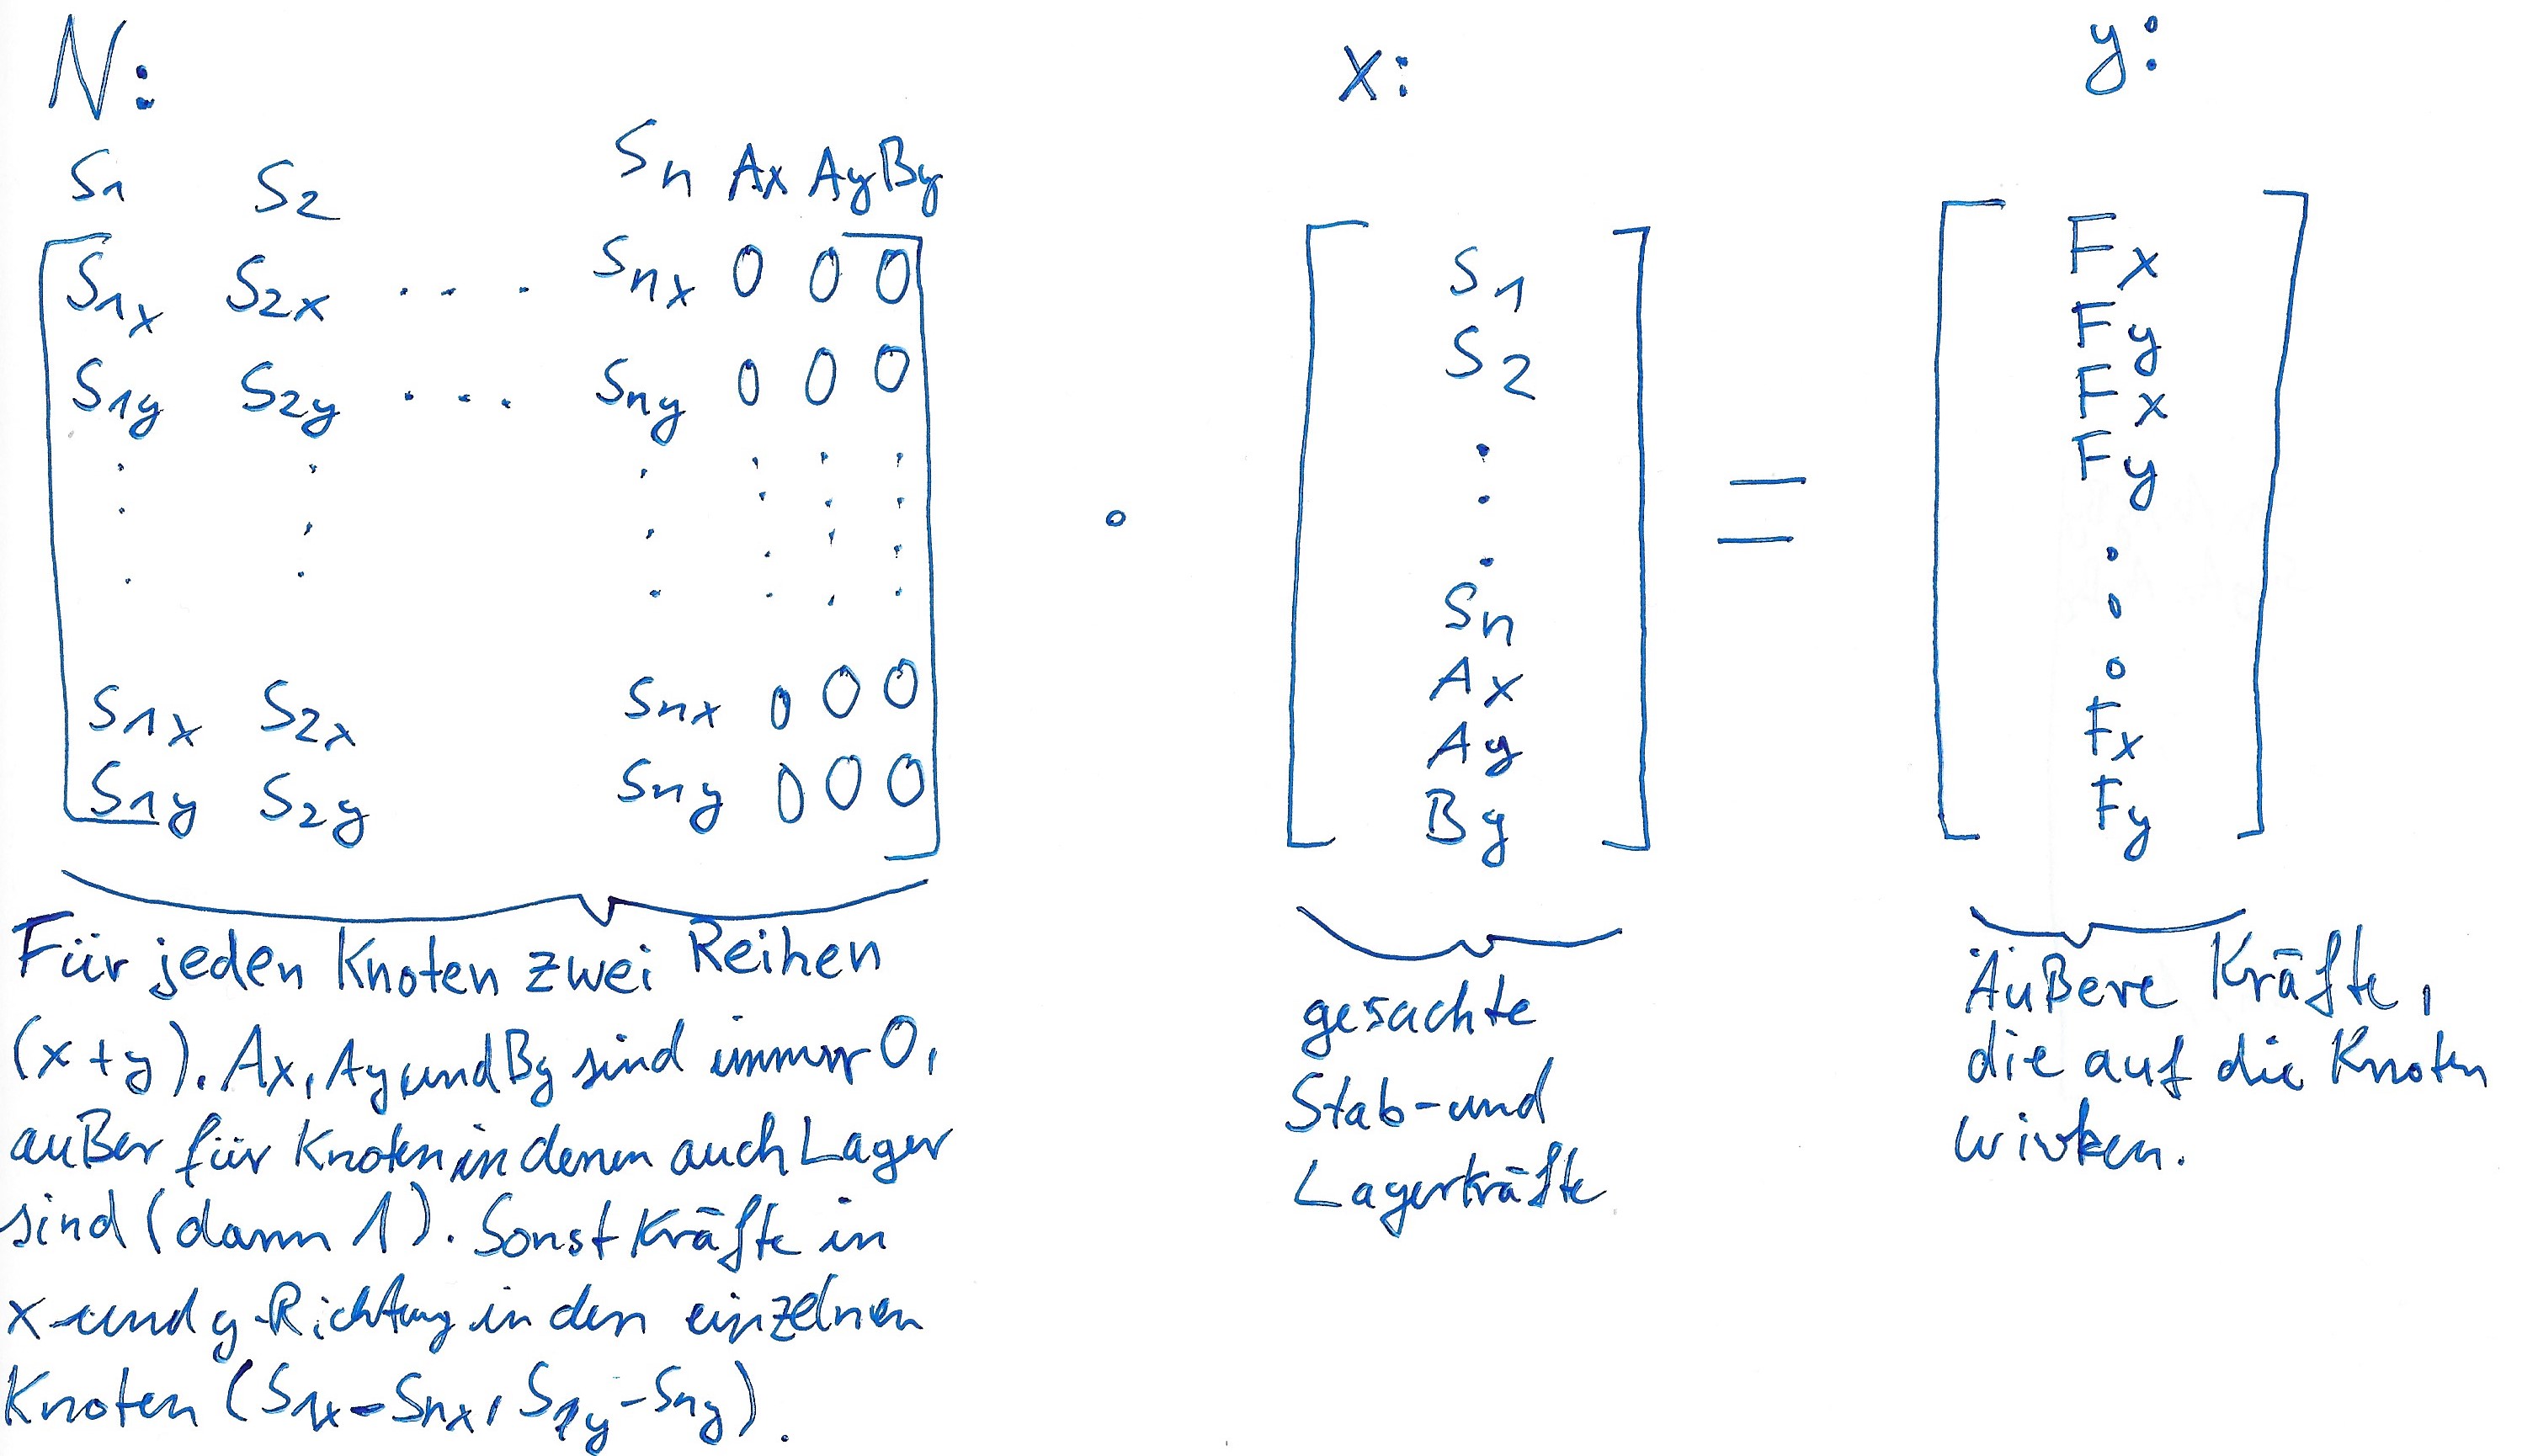 N: x: y:
S1 S2 Sn Ax Ay By
S1x S2x ... Snx 0 0 0
S1y S2y ... Sny 0 0 0
S1x S2x Snx 0 0 0
S1y S2y Sny 0 0 0
Für jeden Knoten zwei Reihen
(x+y). Ax, Ay und By sind immer 0,
außer für Knoten in denen auch Lager
sind (dann 1). Sonst Kräfte in
x-und y-Richtung in den einzelnen
Knoten (S1x-Snx, S1y-Sny).
·
S1
S2
.
.
.
Sn
Ax
Ay
By
gesuchte
Stab-und
Lagerkräfte
=
Fx
Fy
Fx
Fy
.
.
.
Fx
Fy
Äußere Kräfte,
die auf die Knoten
wirken.